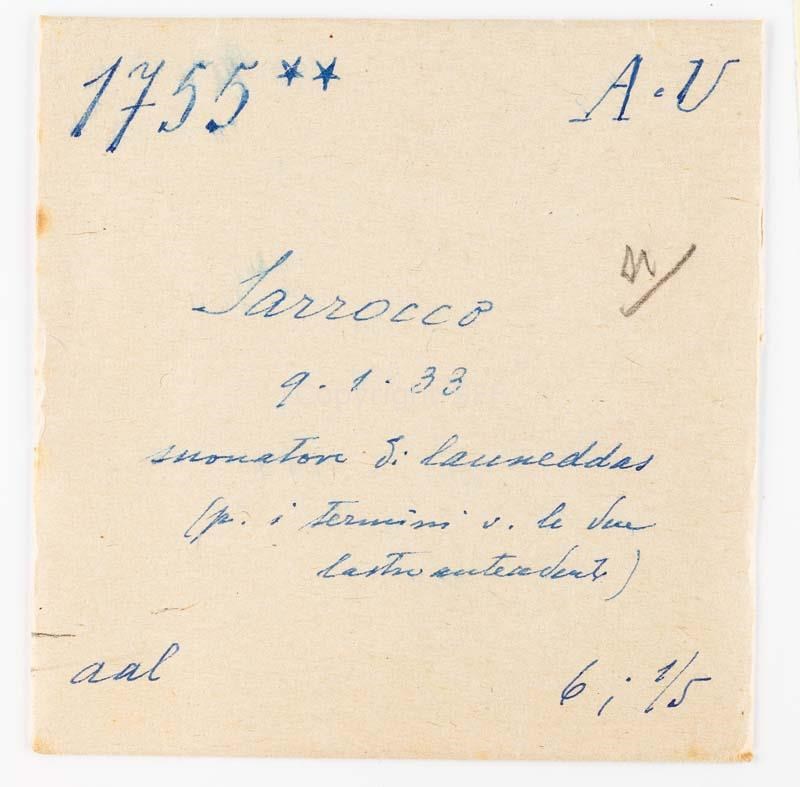 1755** A.V
Sarrocco
9.1.33
suonatore di launeddas
(p. i termini v. le due
lastre antecedenti)
aal 6 ; 1/5